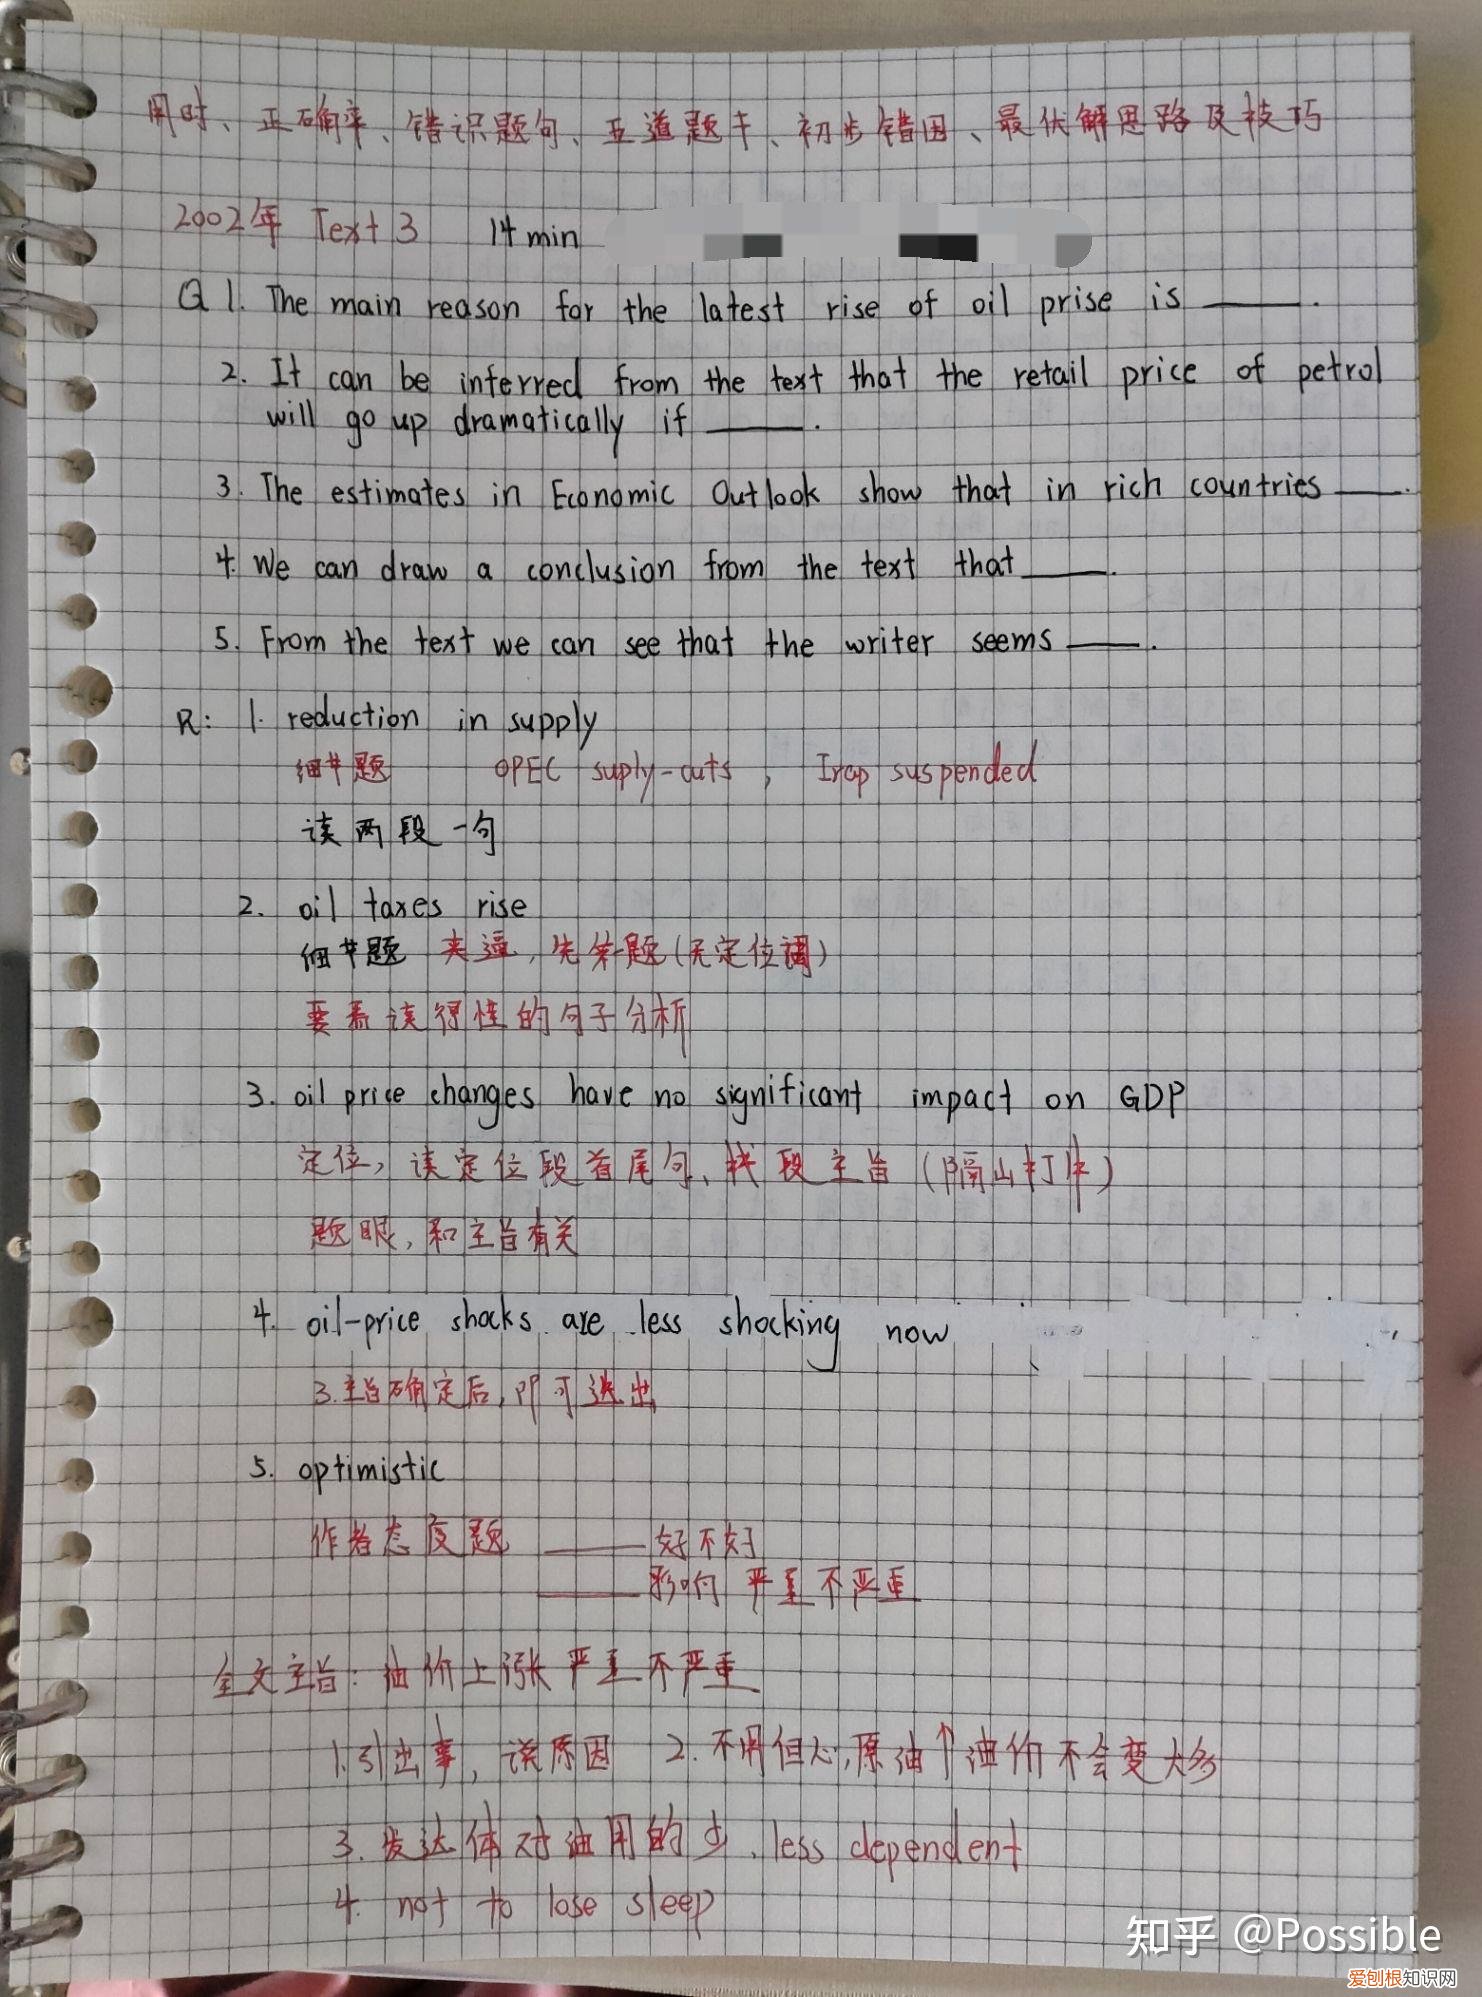 用时、正确率、错误题句、五道题干、初步错因、最优解思路及技巧
2002年 Text 3 14 min
Q 1. The main reason for the latest rise of oil prise is ____.
2. It can be inferred from the text that the retail price of petrol
will go up dramatically if ____.
3. The estimates in Economic Outlook show that in rich countries ____.
4. We can draw a conclusion from the text that ____.
5. From the text we can see that the writer seems ____.
R: 1. reduction in supply
细节题 OPEC suply-cuts, Iraq suspended
读两段一句
2. oil taxes rise
细节题 夹逼,先第题(无定位词)
要看读得性的句子分析
3. oil price changes have no significant impact on GDP
定位,读定位段首尾句、找段主旨(隔山打牛)
题眼,和主旨有关
4. oil-price shocks are less shocking now
3.主旨确定后,即可选出
5. optimistic
作者态度题 —— 好不好
—— 影响 严重不严重
全文主旨:油价上涨严重不严重
1.引出事,说原因 2.不用但心,原油↑油价不会变太多
3.发达体对油用的少、less dependent
4. not to lose sleep
知乎 @Possible
爱刨根知识网